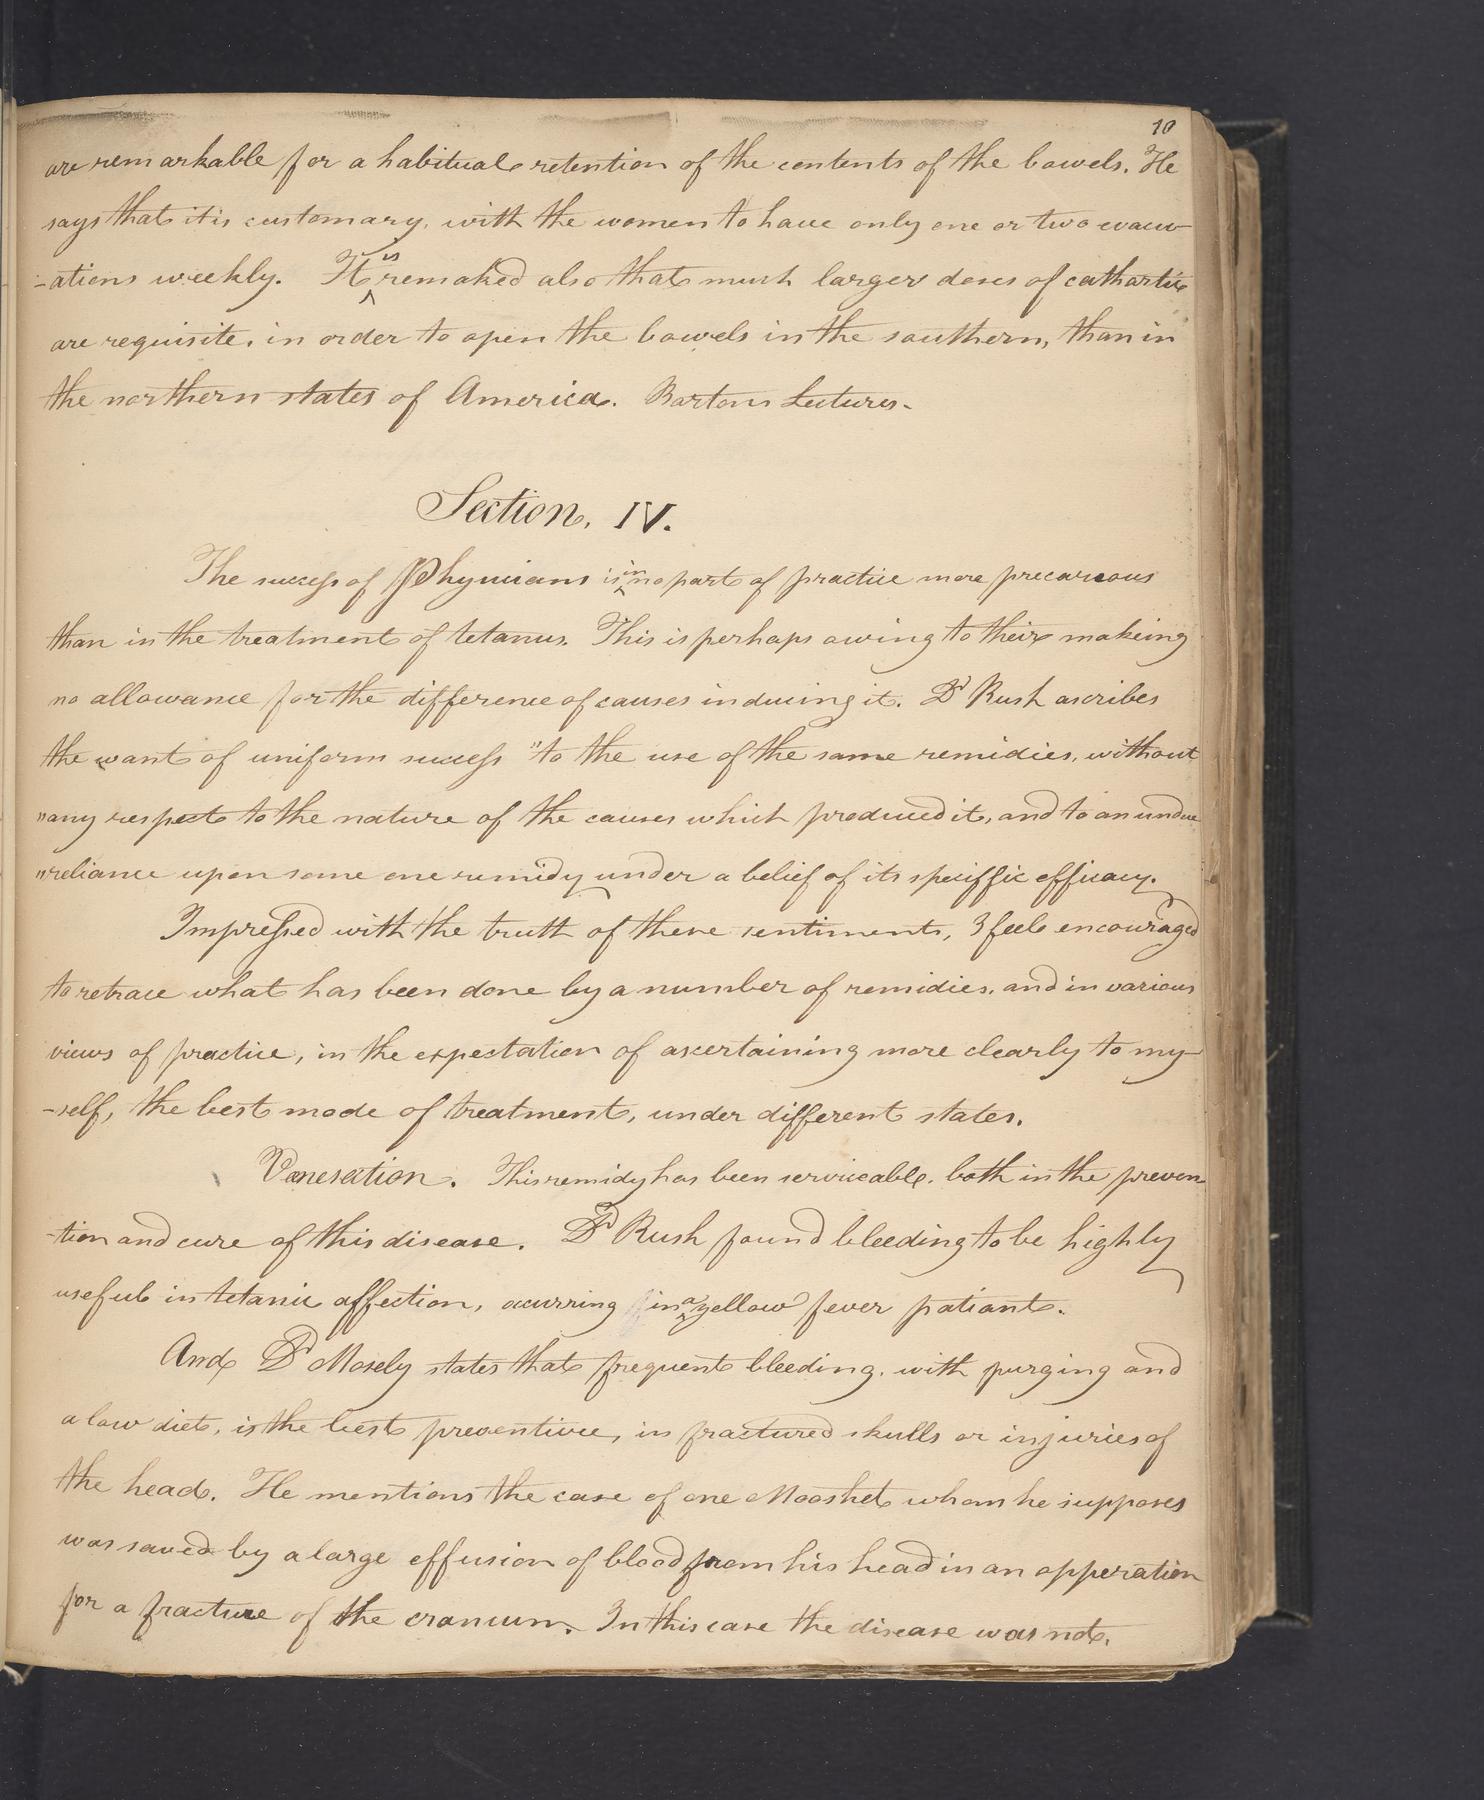 10
are remarkable for a habitual retention of the contents of the bowels. He
says that it is customary, with the women to have only one or two evacu-
-ations weekly. It is remaked also that much larger doses of cathartic
are requisite, in order to open the bowels in the southern, than in
the northern states of America. Bartons Lectures.
Section. IV.
The success of Physicians is in no part of practice more precareous
than in the treatment of tetanus. This is perhaps owing to their makeing
no allowance for the difference of causes inducing it. Dr Rush ascribes
the want of uniform success "to the use of the same remidies, without
"any respect to the nature of the causes which produced it, and to an undue
"reliance upon some one remidy under a belief of its speciffic efficacy.
Impressed with the truth of these sentiments, I feel encouraged
to retrace what has been done by a number of remidies, and in various
views of practice, in the expectation of ascertaining more clearly to my-
-self, the best mode of treatment, under different states.
Venesection. This remidy has been serviceable, both in the preven
-tion and cure of this disease. Dr Rush found bleeding to be highly
useful in tetanic affection, occurring in a yellow fever patiant.
And Dr Mosely states that frequent bleeding, with purging and
a low diet, is the best preventive, in fractured skulls or injuries of
the head. He mentions the case of one Mooshet whom he supposes
was saved by a large effusion of blood from his head in an opperation
for a fracture of the cranium. In this case the disease was not,